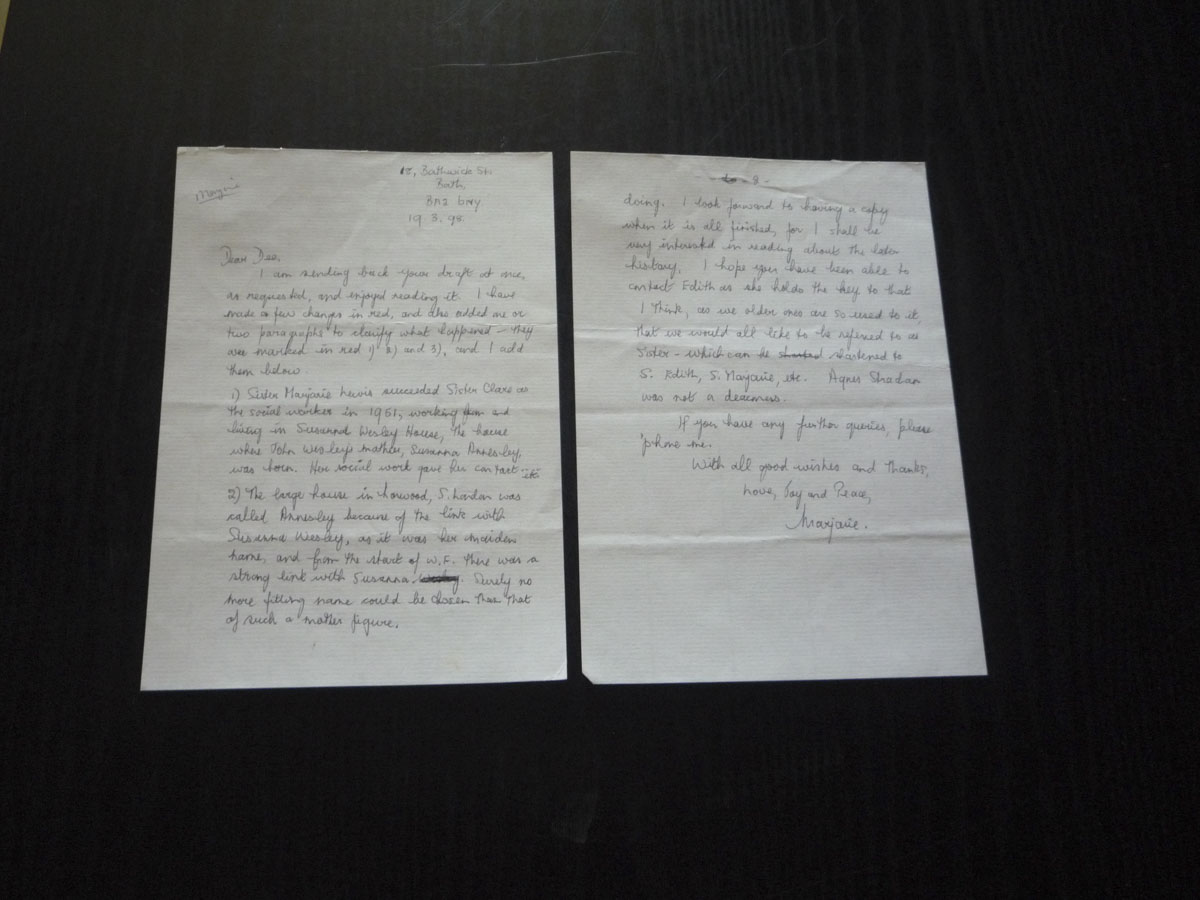 Marjorie
18, Bathwick St.
Bath,
BA2 6NY
19.3.98.
Dear Dee,
I am sending back your draft at once,
as requested, and enjoyed reading it. I have
made a few changes in red, and also added one or
two paragraphs to clarify what happened – they
are marked in red 1) 2) and 3), and I add
them below.
1) Sister Marjorie Lewis succeeded Sister Clare as
the social worker in 1951, working from and
living in Susanna Wesley House, the house
where John Wesley's mother, Susanna Annesley,
was born. Her social work gave her contact etc.
2) The large house in Norwood, S. London was
called Annesley because of the link with
Susanna Wesley, as it was her maiden
name, and from the start of W.F. there was a
strong link with Susanna. Surely no
more fitting name could be chosen than that
of such a mother figure.
- 3 -
doing. I look forward to having a copy
when it is all finished, for I shall be
very interested in reading about the later
history. I hope you have been able to
contact Edith as she holds the key to that
I think, as we older ones are so used to it,
that we would all like to be referred to as
Sister – which can be shortened to
S. Edith, S. Marjorie, etc. Agnes
was not a deaconess.
If you have any further queries, please
'phone me.
With all good wishes and thanks,
Love, Joy and Peace,
Marjorie.